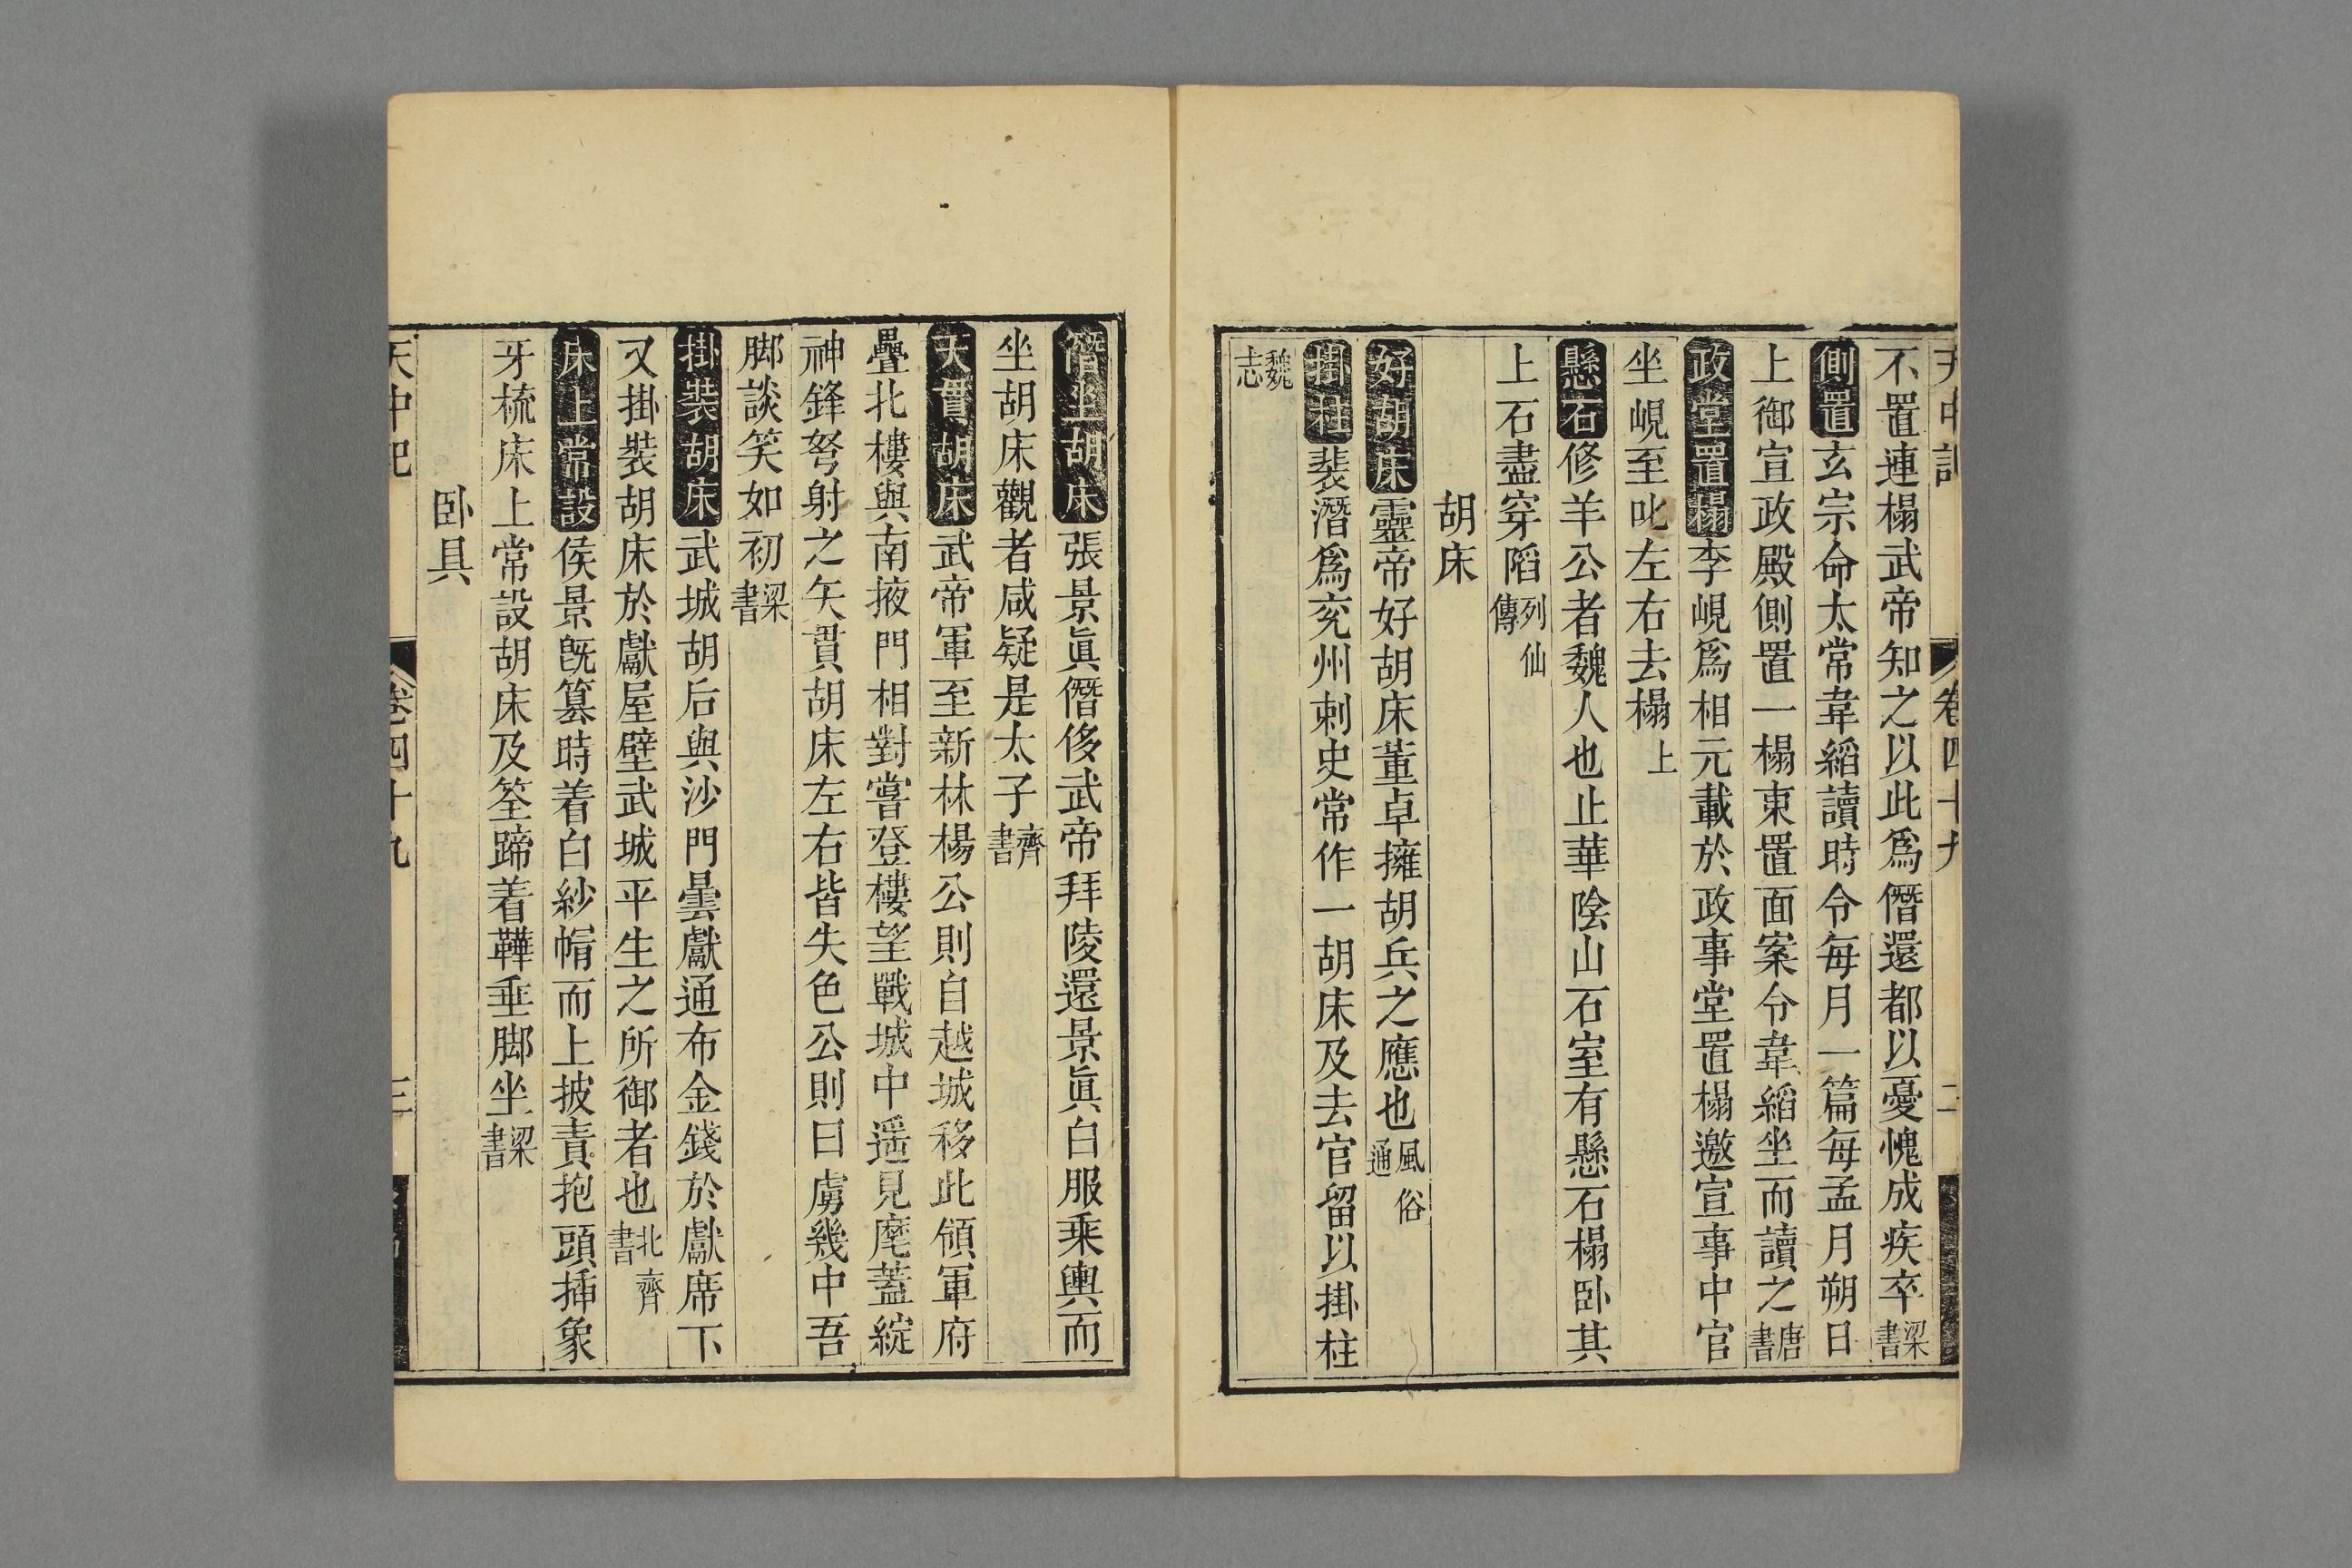 天中記 卷四十九 二
不置連榻武帝知之以此爲僭還都以憂愧成疾卒梁書
側置玄宗命太常韋縚讀時令每月一篇每孟月朔日
上御宣政殿側置一榻東置面案令韋縚坐而讀之唐書
政堂置榻李峴爲相元載於政事堂置榻邀宣事中官
坐峴至叱左右去榻上
懸石修羊公者魏人也止華陰山石室有懸石榻卧其
上石盡穿䧟列仙傳
胡床
好胡床靈帝好胡床董卓擁胡兵之應也風俗通
掛柱裴潛爲兖州刺史常作一胡床及去官留以掛柱
魏志
僭坐胡床張景眞僭侈武帝拜陵還景眞白服乗輿而
坐胡床觀者咸疑是太子齊書
矢貫胡床武帝軍至新林楊公則自越城移此領軍府
疊北樓與南掖門相對嘗登樓望戰城中遥見麾蓋縱
神鋒弩射之矢貫胡床左右皆失色公則曰虜幾中吾
脚談笑如初梁書
掛裝胡床武城胡后與沙門曇獻通布金錢於獻席下
又掛裝胡床於獻屋壁武城平生之所御者也北齊書
床上常設侯景旣篡時着白紗帽而上披責抱頭揷象
牙梳床上常設胡床及筌蹄着鞾垂脚坐梁書
卧具
天中記 卷四十九 三